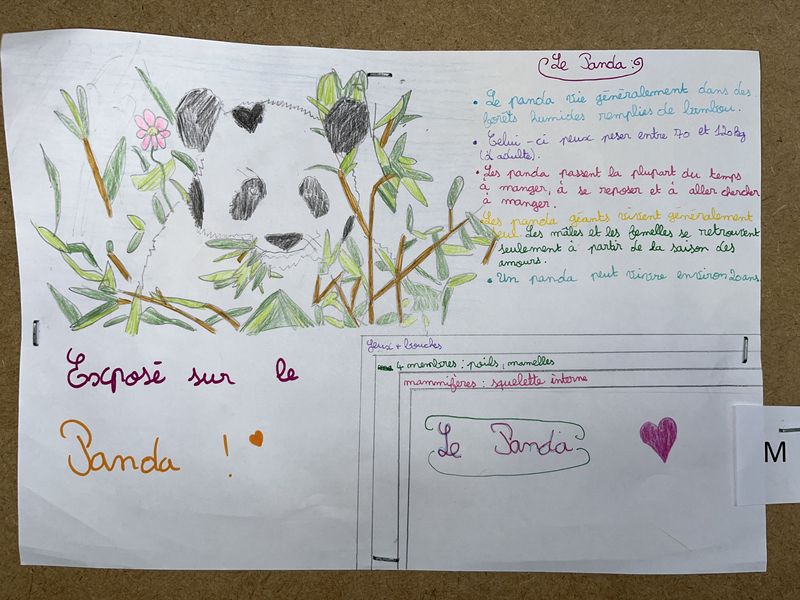 Le Panda :
• Le panda vie généralement dans des
forêts humides remplies de bambou.
• Celui-ci peux peser entre 70 et 120kg
(à adulte).
• Les panda passent la plupart du temps
à manger, à se reposer et à aller chercher
à manger.
Les panda géants vivent généralement
seul. Les mâles et les femelles se retrouvent
seulement à partir de la saison des
amours.
• Un panda peut vivre environ 20 ans.
Exposé sur le
Panda !
Yeux + bouches
4 membres : poils, mamelles
mammifères : squelette interne
Le Panda
M